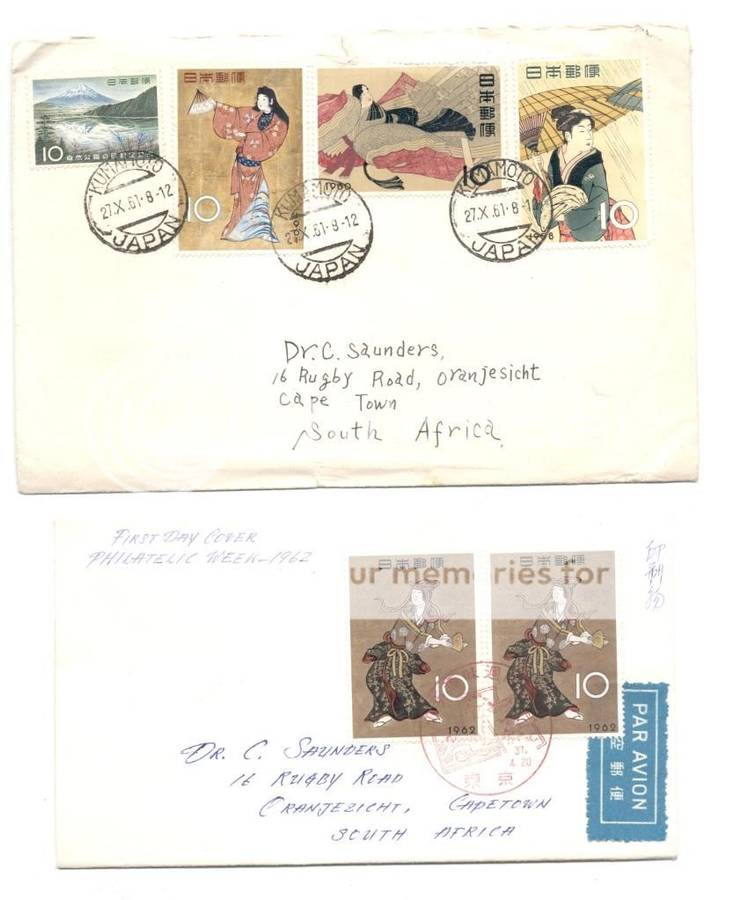 日本郵便
10 自然公園の日制定記念
日本郵便
10
1961
日本郵便
10
1960
日本郵便
10
1958
KUMAMOTO
27.X.61.8-12
JAPAN
KUMAMOTO
27.X.61.8-12
JAPAN
KUMAMOTO
27.X.61.8-12
JAPAN
Dr. C. Saunders,
16 Rugby Road, Oranjesicht
Cape Town
South Africa
FIRST DAY COVER
PHILATELIC WEEK - 1962
印刷物
日本郵便
10
1962
日本郵便
10
1962
ur memories for
31.
4.20
東京
PAR AVION
空郵便
DR. C. SAUNDERS
16 RUGBY ROAD
ORANJEZICHT, CAPETOWN
SOUTH AFRICA